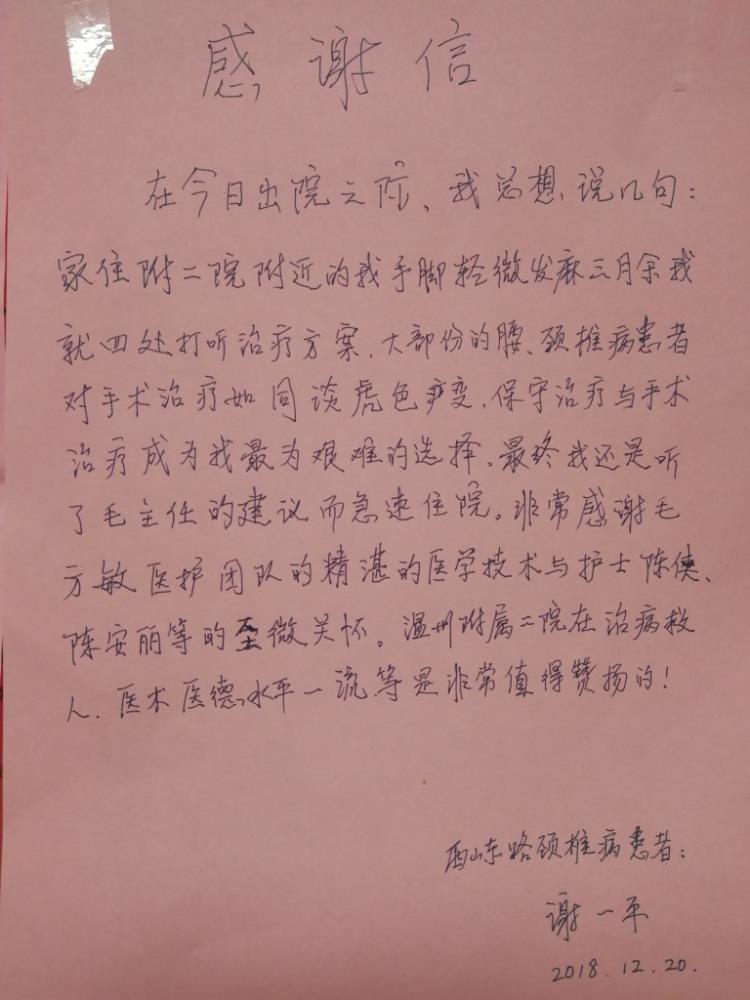 感谢信
在今日出院之际、我总想说几句：
家住附二院附近的我手脚轻微发麻三月余我
就四处打听治疗方案，大部份的腰、颈椎病患者
对手术治疗如同谈虎色变，保守治疗与手术
治疗成为我最为艰难的选择、最终我还是听
了毛主任的建议而急速住院。非常感谢毛
方敏医护团队的精湛的医学技术与护士陈使、
陈安丽等的至微关怀。温州附属二院在治病救
人、医术医德水平一流等是非常值得赞扬的！
西山东路颈椎病患者：
谢一平
2018.12.20.